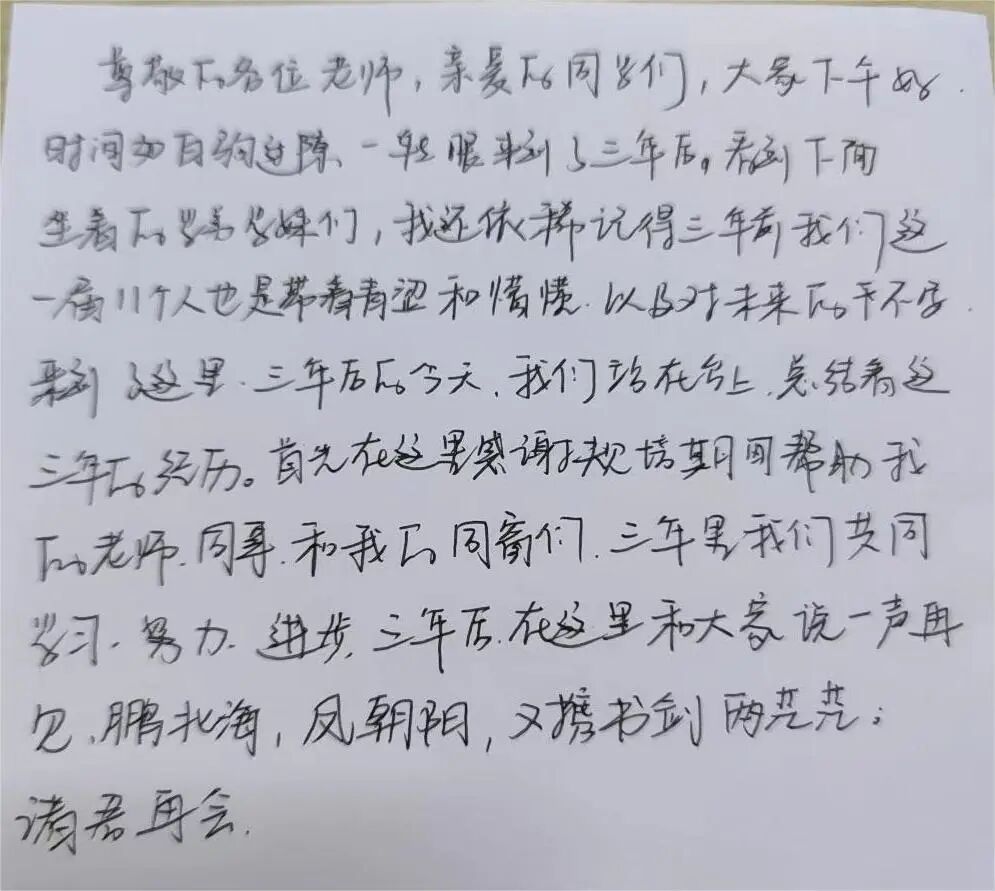 尊敬的各位老师，亲爱的同学们，大家下午好.
时间如白驹过隙、一转眼来到了三年后。看到下面
坐着的学弟学妹们，我还依稀记得三年前我们这
一届11个人也是带着青涩和懵懂.以及对未来的
来到了这里.三年后的今天.我们站在台上.总结着这
三年的经历。首先在这里感谢规培期间帮助我
的老师.同事.和我的同窗们.三年里我们共同
学习.努力.进步.三年后.在这里和大家说一声再
见.鹏北海，凤朝阳，又携书剑两茫茫；
诸君再会.